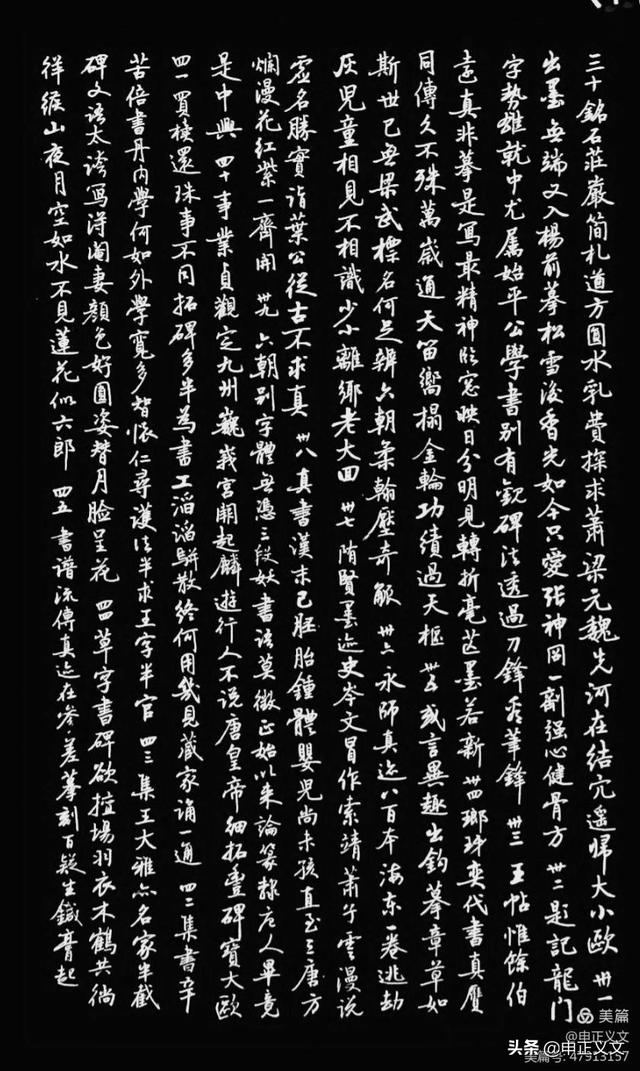 三十銘石莊嚴簡札遒方圓水乳費探求蕭梁元魏先河在結穴遙歸大小歐 卅一
出墨無端又入楊前摹松雪後香光如今只愛張神冏一劑强心健骨方 卅二題記龍门
字勢雄就中尤屬始平公學書別有觀碑法透過刀鋒看筆鋒 卅三 王帖惟餘伯
遠真非摹是寫最精神臨窗映日分明見轉折毫芒墨若新 卅四瑯玡奕代書真贋
同傳久不殊萬歲通天笛嚮搨金輪功績過天樞 卅五或言異趣出鈎摹章草如
斯世已無梁武標名何足辨六朝柔翰壓奇觚 卅六永師真迹八百本海東一卷逃劫
灰兒童相見不相識少小離鄉老大回 卅七隋賢墨迹史岑文冒作索靖蕭子雲漫說
虛名勝實詣葉公從古不求真 卅八真書漢末已胚胎鍾體嬰兒尚未孩直至三唐方
爛漫花紅紫一齊開 卅九六朝別字體無憑三段妖書語莫徵正始以來論篆隸唐人畢竟
是中興 四十事業貞觀定九州巍峩宮闕起麟遊行人不說唐皇帝細拓豐碑寶大歐
四一買櫝還珠事不同拓碑多半為書工滔滔駢散終何用幾見藏家誦一通 四二集書辛
苦倍書丹內學何如外學寬多智懷仁尋護法半求王字半官 四三集王大雅亦名家半截
碑文語太誇寫得閹妻顏色好圓姿替月臉呈花 四四草字書碑欲擅場羽衣木鶴共徜
徉緱山夜月空如水不見蓮花似六郎 四五書譜流傳真迹在參差摹刻百疑生鍼膏起
美篇
@申正义文
美篇号: 47913157
头条 @申正义文